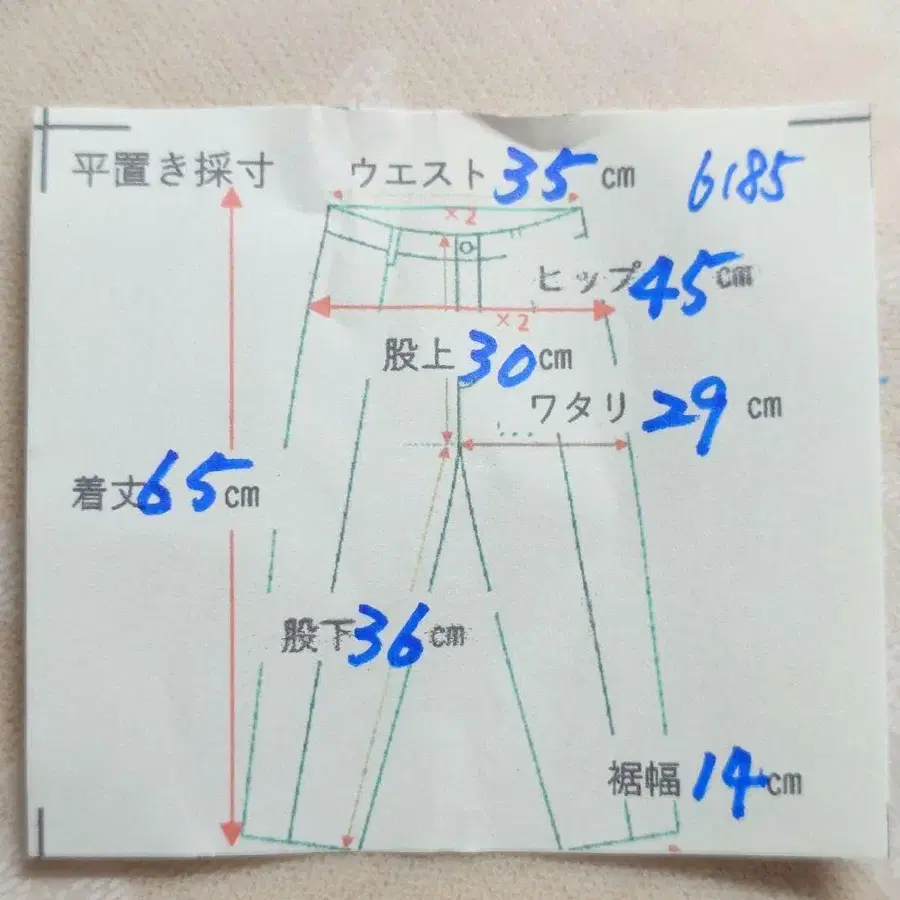 平置き採寸 ウエスト 35 cm 6185
×2
ヒップ 45 cm
×2
股上 30 cm
ワタリ 29 cm
着丈 65 cm
股下 36 cm
裾幅 14 cm